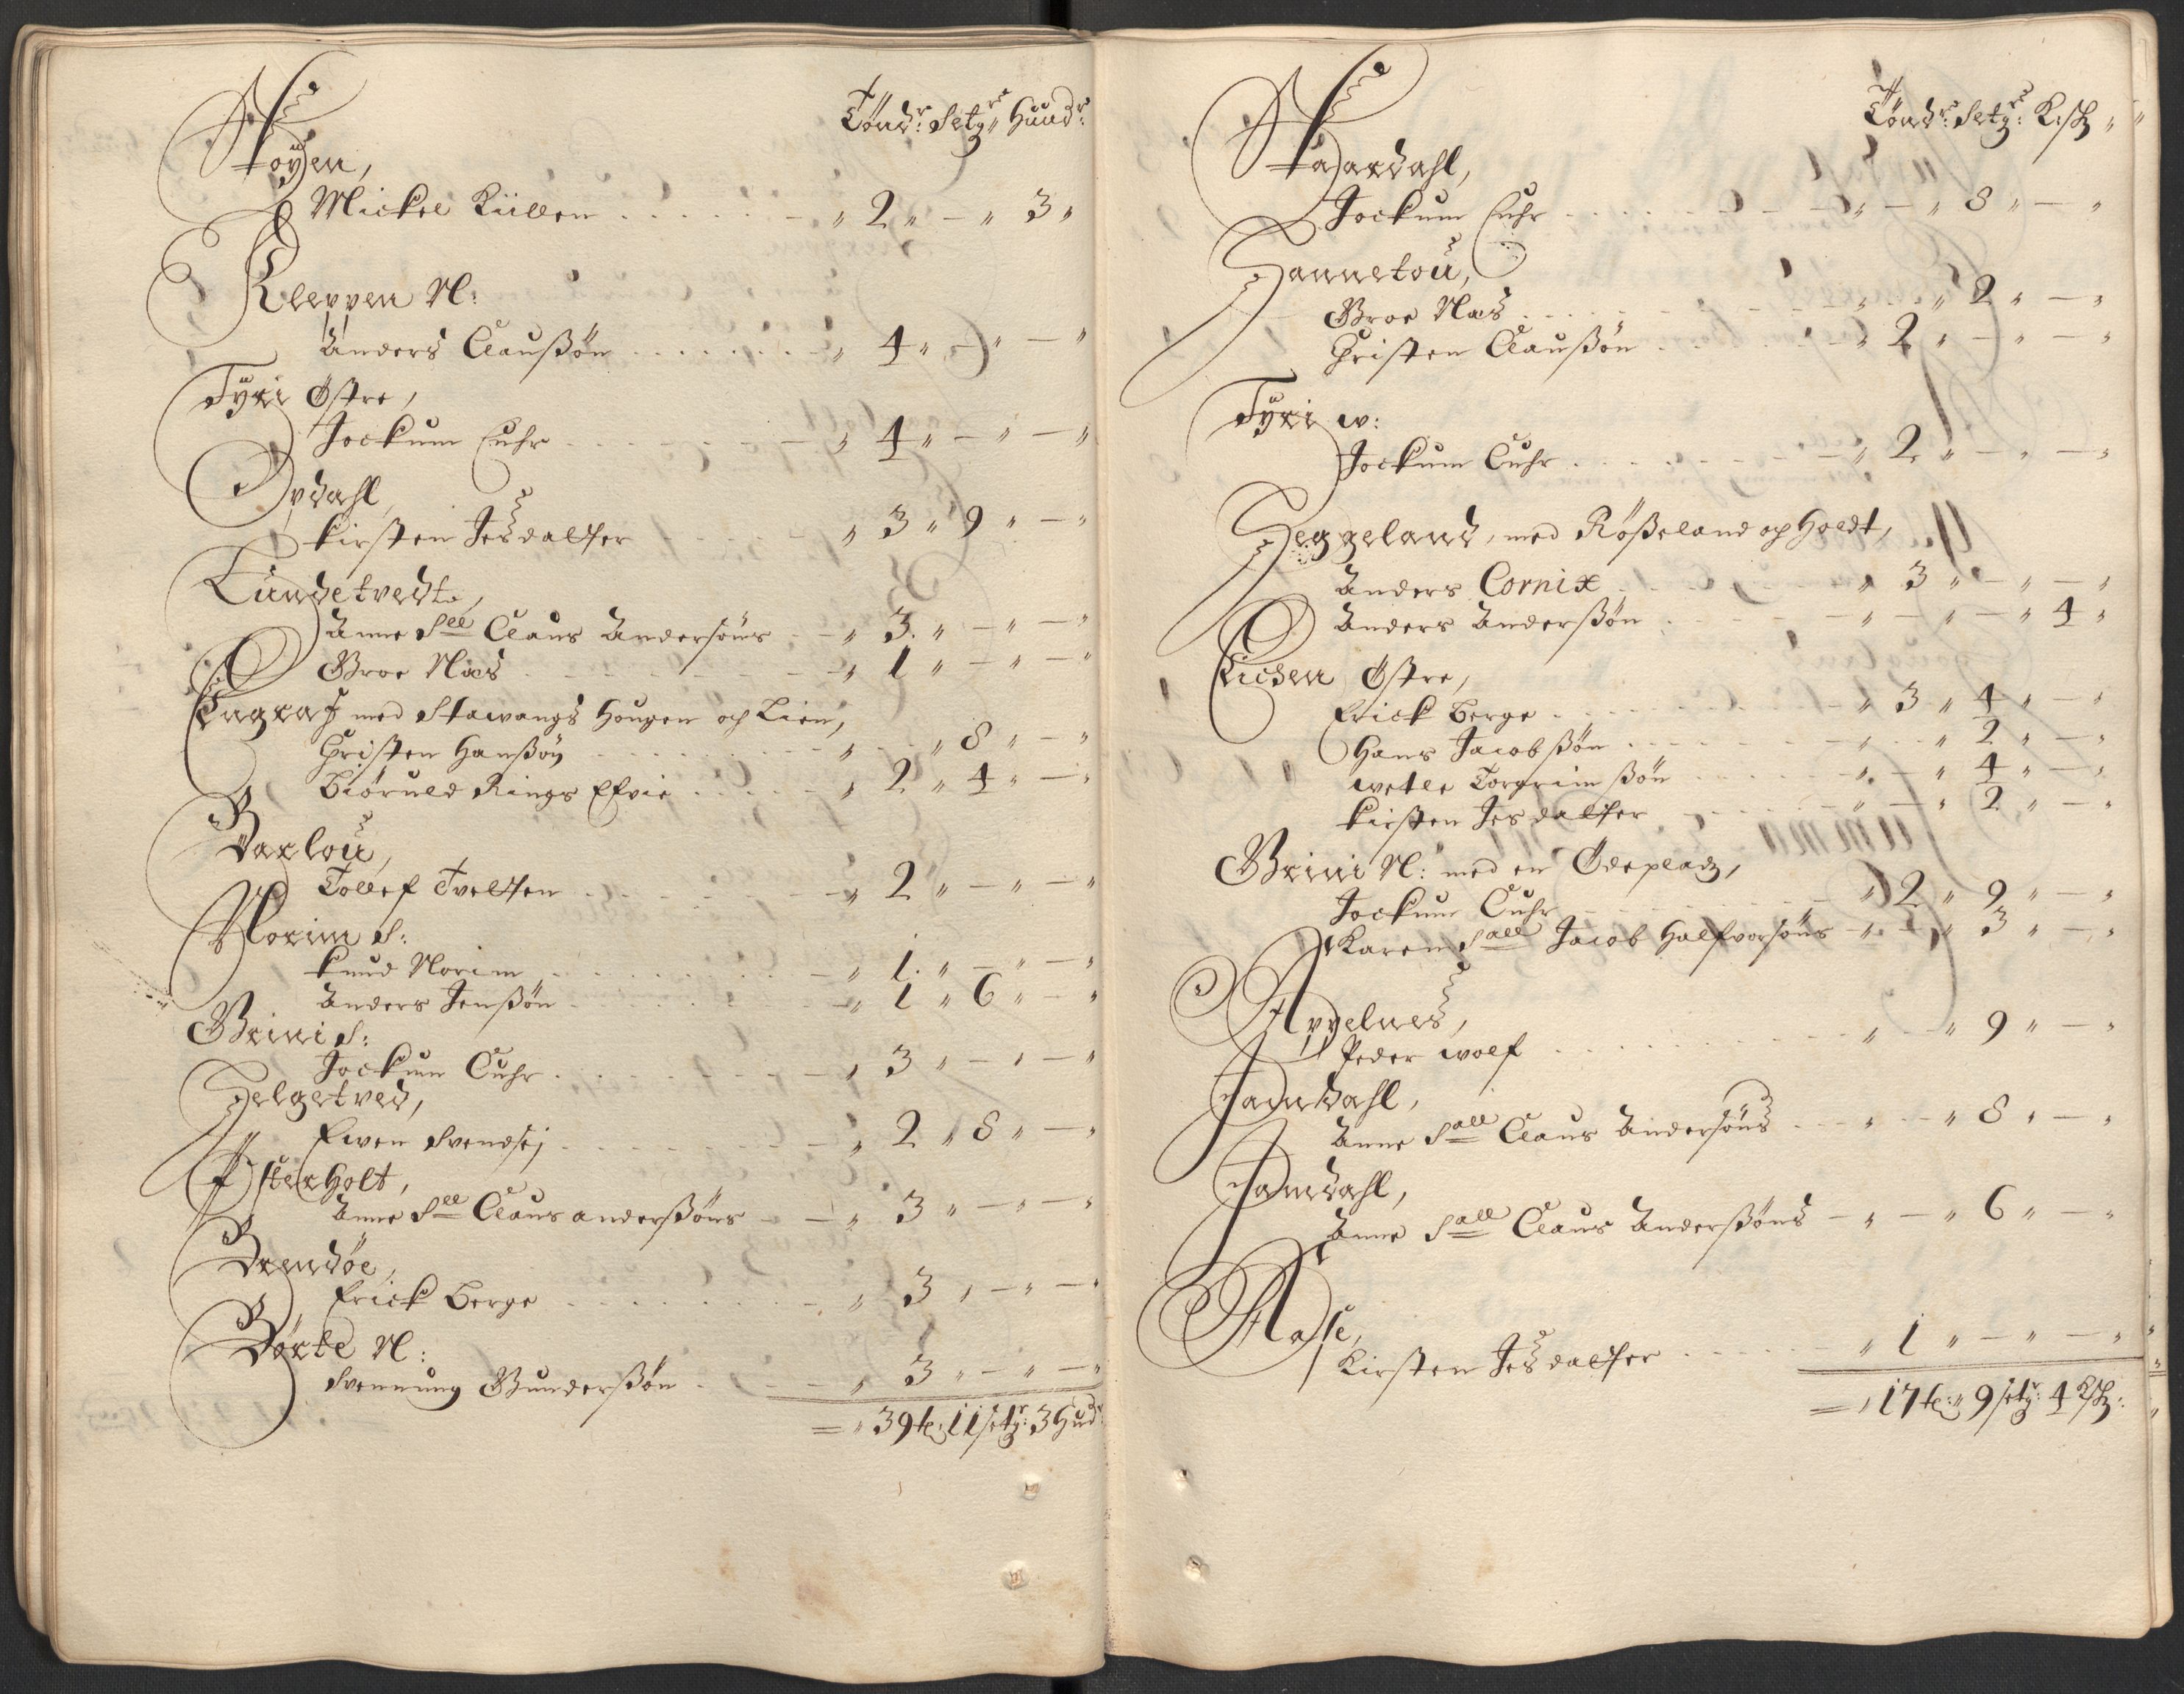 Tönd: Setg: Huud:
Høyen,
Mickel Küllen - „ 2 „ - „ 3 „
Kleppen N:
Anders Claußøn - „ 4 „ - „ - „
Tyri Østre,
Jockum Cuhr - „ 4 „ - „ - „
Opdahl,
Kirsten Jesdatter „ 3 „ 9 „ - „
Lundetvedt,
Anne Sll Claus Andersøns - „ 3 „ - „ - „
Broe Næs - „ 1 „ - „ - „
Engraf med Stawangs Hougen og Lien,
Christen Hanßøn „ - „ 8 „ - „
Biørnld Rings Efvie „ 2 „ 4 „ - „
Varlou,
Tollef Tveltten - „ 2 „ - „ - „
Norim S:
Knud Norim - „ 1 „ - „ - „
Anders Jenßøn - „ 1 „ 6 „ - „
Brini S:
Jockum Cuhr - „ 3 „ - „ - „
Helgetved,
Ewen Svendsøj - „ 2 „ 8 „ - „
Østerholt,
Anne Sll Claus anderßøns - „ 3 „ - „ - „
Brendøe,
Erick Berge - „ 3 „ - „ - „
Børte N:
Svennung Gunderßøn - „ 3 „ - „ - „
= „ 39 te: 11 setg: 3 Hud:
Tönd: Setg: K:sk „
Haardahl,
Jockum Cuhr - „ - „ 8 „ - „
Hannetou,
Broe Næs - „ „ 2 „ - „
Christen Claußøn - „ 2 „ - „ - „
Tyri w:
Jockum Cuhr - „ 2 „ - „ - „
Heggeland, med Rößeland og Holdt,
Anders Cornix - „ 3 „ - „ - „
Anders Anderßøn - „ - „ - „ 4 „
Lidsen Østre,
Erick Berge - „ 3 „ 4 „ - „
Hans Jacobßøn - „ - „ 2 „ - „
wetle Torgrimßøn - „ - „ 4 „ - „
Kirsten Jesdatter - „ - „ 2 „ - „
Brini N: med en Ødeplads,
Jockum Cuhr „ 2 „ 9 „ - „
Karen Sall Jacob Halfvorsøns - „ - „ 3 „ - „
Appelnes,
Peder wolf - „ - „ 9 „ - „
Jamdahl,
Anne Sall Claus Andersøns - „ - „ 8 „ - „
Jamdahl,
Anne Sall Claus Anderßøns - „ - „ 6 „ - „
Aase,
Kirsten Jesdatter - „ 1 „ - „ - „
= „ 17 te: „ 9 setg: 4 K:sk: